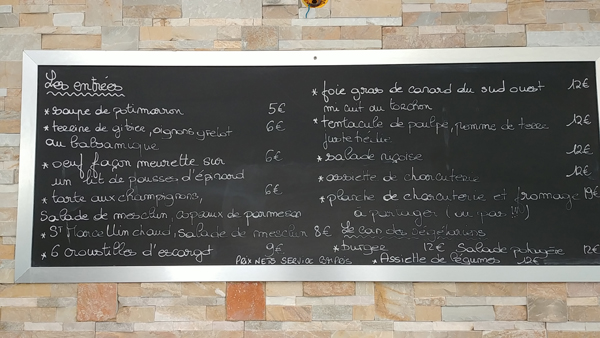 Les entrées
* soupe de potimarron 5€
* terrine de gibier, oignons grelot 6€
au balsamique
* oeuf façon meurette sur 6€
un lit de pousses d'épinard
* tarte aux champignons, 6€
salade de mesclun, copeaux de parmesan
* St Marcellin chaud, salade de mesclun 8€
* 6 croustilles d'escargot 9€
PRIX NETS SERVICE COMPRIS
* foie gras de canard du sud ouest 12€
mi cuit au torchon
* tentacule de poulpe, pomme de terre 12€
juste tiédie
* salade niçoise 12€
* assiette de charcuterie 12€
* planche de charcuterie et fromage 19€
a partager (ou pas !!!)
Le coin des Végétariens
* burger 12€ Salade 12€
* Assiette de légumes 12€